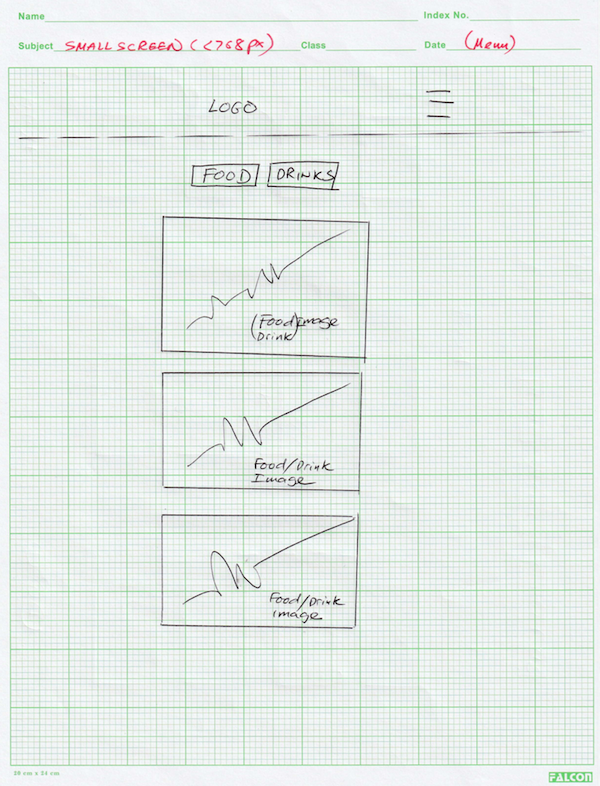 Name
Index No.
Subject SMALL SCREEN (<768px)
Class
Date (Menu)
LOGO
FOOD
DRINKS
(Food) Image
Drink
Food/Drink
Image
Food/Drink
image
28 cm x 24 cm
FALCON